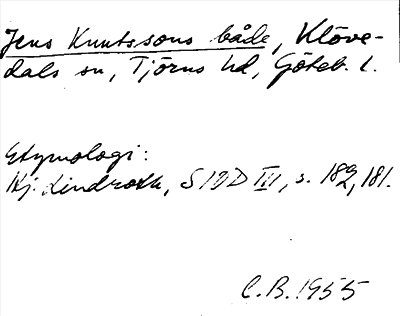 Jens Knutssons både, Klöve-
dals sn, Tjörns hd, Göteb. l.
Etymologi:
Hj. Lindroth, SIOD III, s. 182, 181.
C.B. 1955